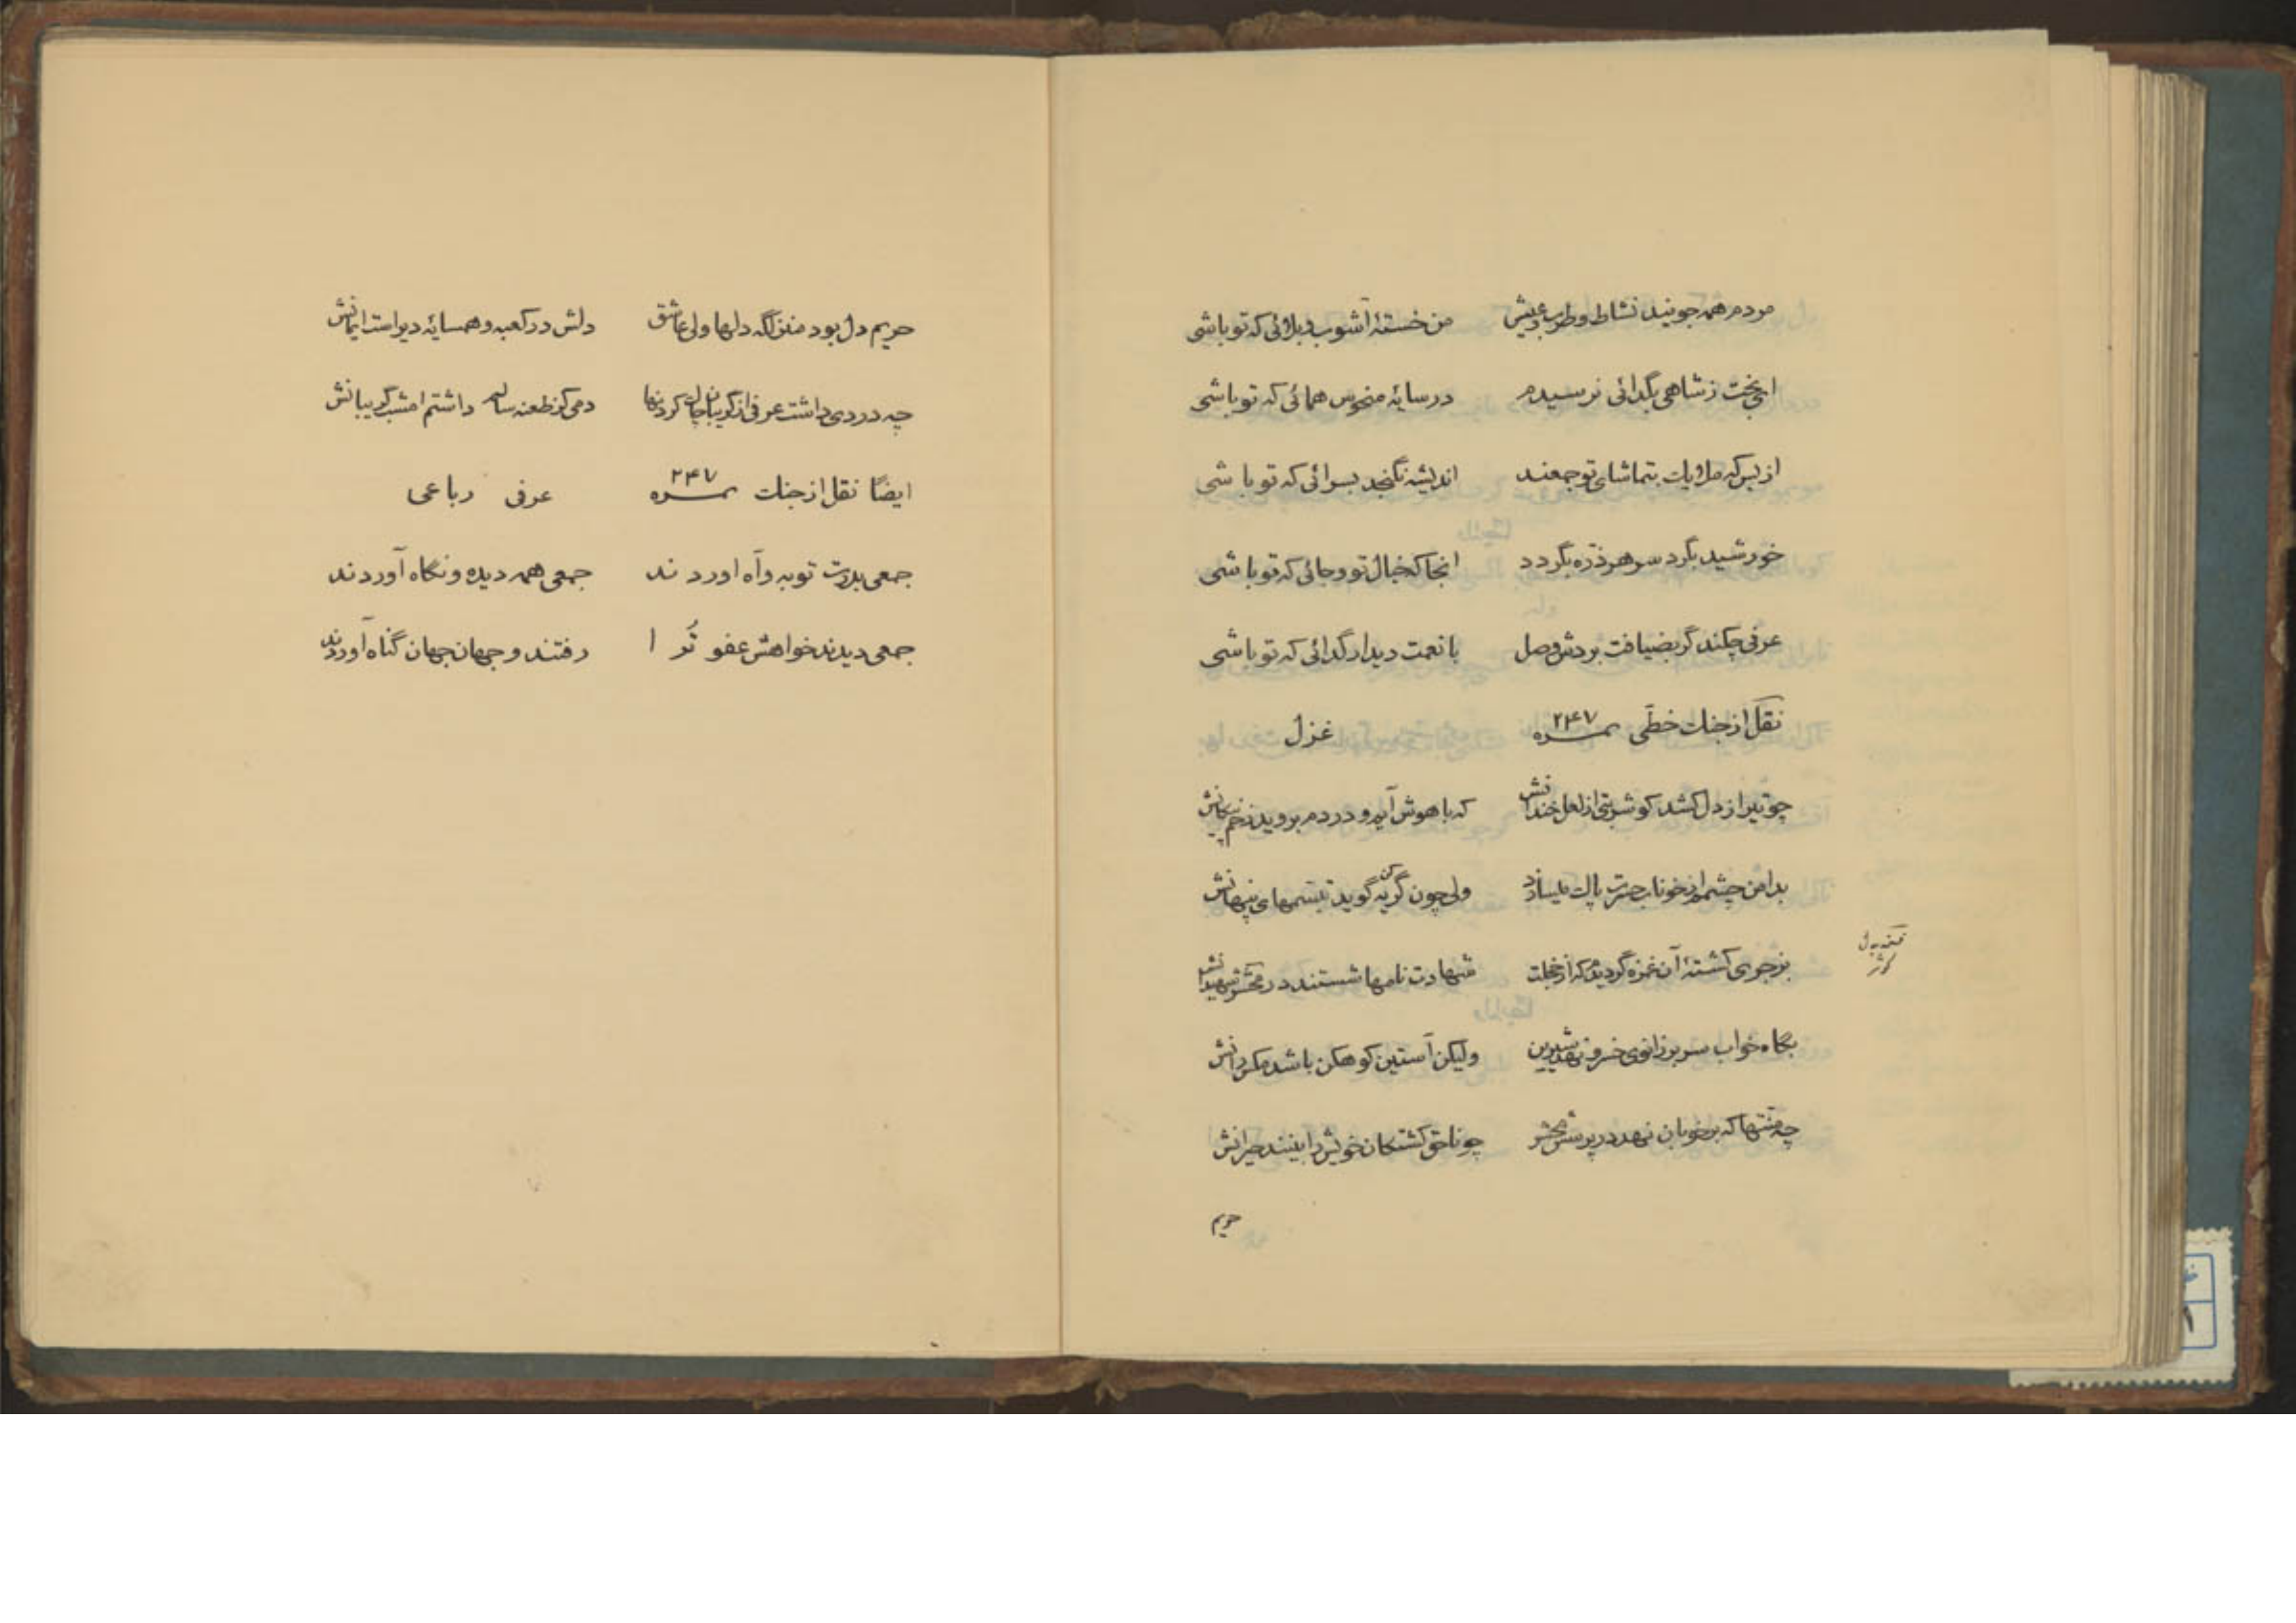 مردم همه جویند نشاط و طرب و عیش من خستهٔ آشوب و بلائی که تو باشی
ای بخت ز شاهی بگدائی نرسیدم در سایهٔ منحوس همائی که تو باشی
از بس که ملایک بتماشای تو جمعند اندیشه نگنجد بسرائی که تو باشی
خورشید بگرد سر هر ذره بگردد انجا که خیال تو و جائی که تو باشی
عرفی چکند گر بضیافت بردش وصل با نعمت دیدار گدائی که تو باشی
نقل از جنات خطی نمره ۲۴۷ غزل
چو تیر از دل کشد کو شربتی از لعل خندانش که با هوش آید و در دم بروید زخم پیکانش
بدامن چشمم از خوناب حسرت پاک میسازد ولی چون گریه کن گوید تبسمهای پنهانش
بزجری کشتهٔ آن غمزه گردیدم که از خجلت شهادت نامها شستند در محشر شهیدانش
بگاه خواب سر بر زانوی خسرو نهد شیرین ولیکن آستین کوهکن باشد مگس رانش
چه منتها که بر خوبان نهد در پرسش محشر چو ناحق کشتکان خویش را بینند حیرانش
حریم
حریم دل بود منزلگه دلها ولی عاشق دلش در کعبه و همسایهٔ دیر است ایمانش
چه دردی داشت عرفی از گریبان چاک کردنها دمی کز طعنه سالم داشتم امشب گریبانش
ایضا نقل از جنات نمره ۲۴۷ عرفی رباعی
جمعی بدرت توبه و آه اوردند جمعی همه دیده و نگاه آوردند
جمعی دیدند خواهش عفو تُرا رفتند و جهان جهان گناه آوردند